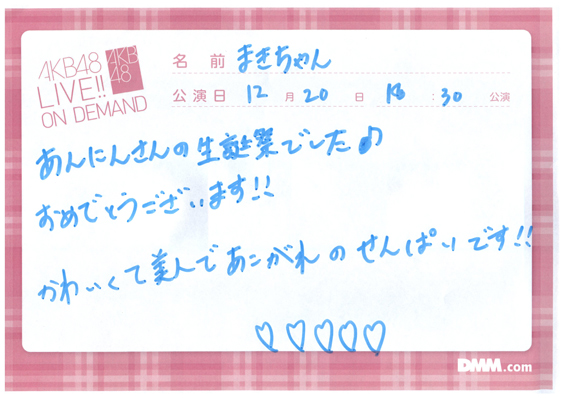 AKB48
LIVE!!
ON DEMAND
AKB
48
名 前 まきちゃん
公演日 12 月 20 日 18 : 30 公演
あんにんさんの生誕祭でした♪
おめでとうございます!!
かわいくて美人であこがれのせんぱいです!!
♡♡♡♡♡
DMM.com